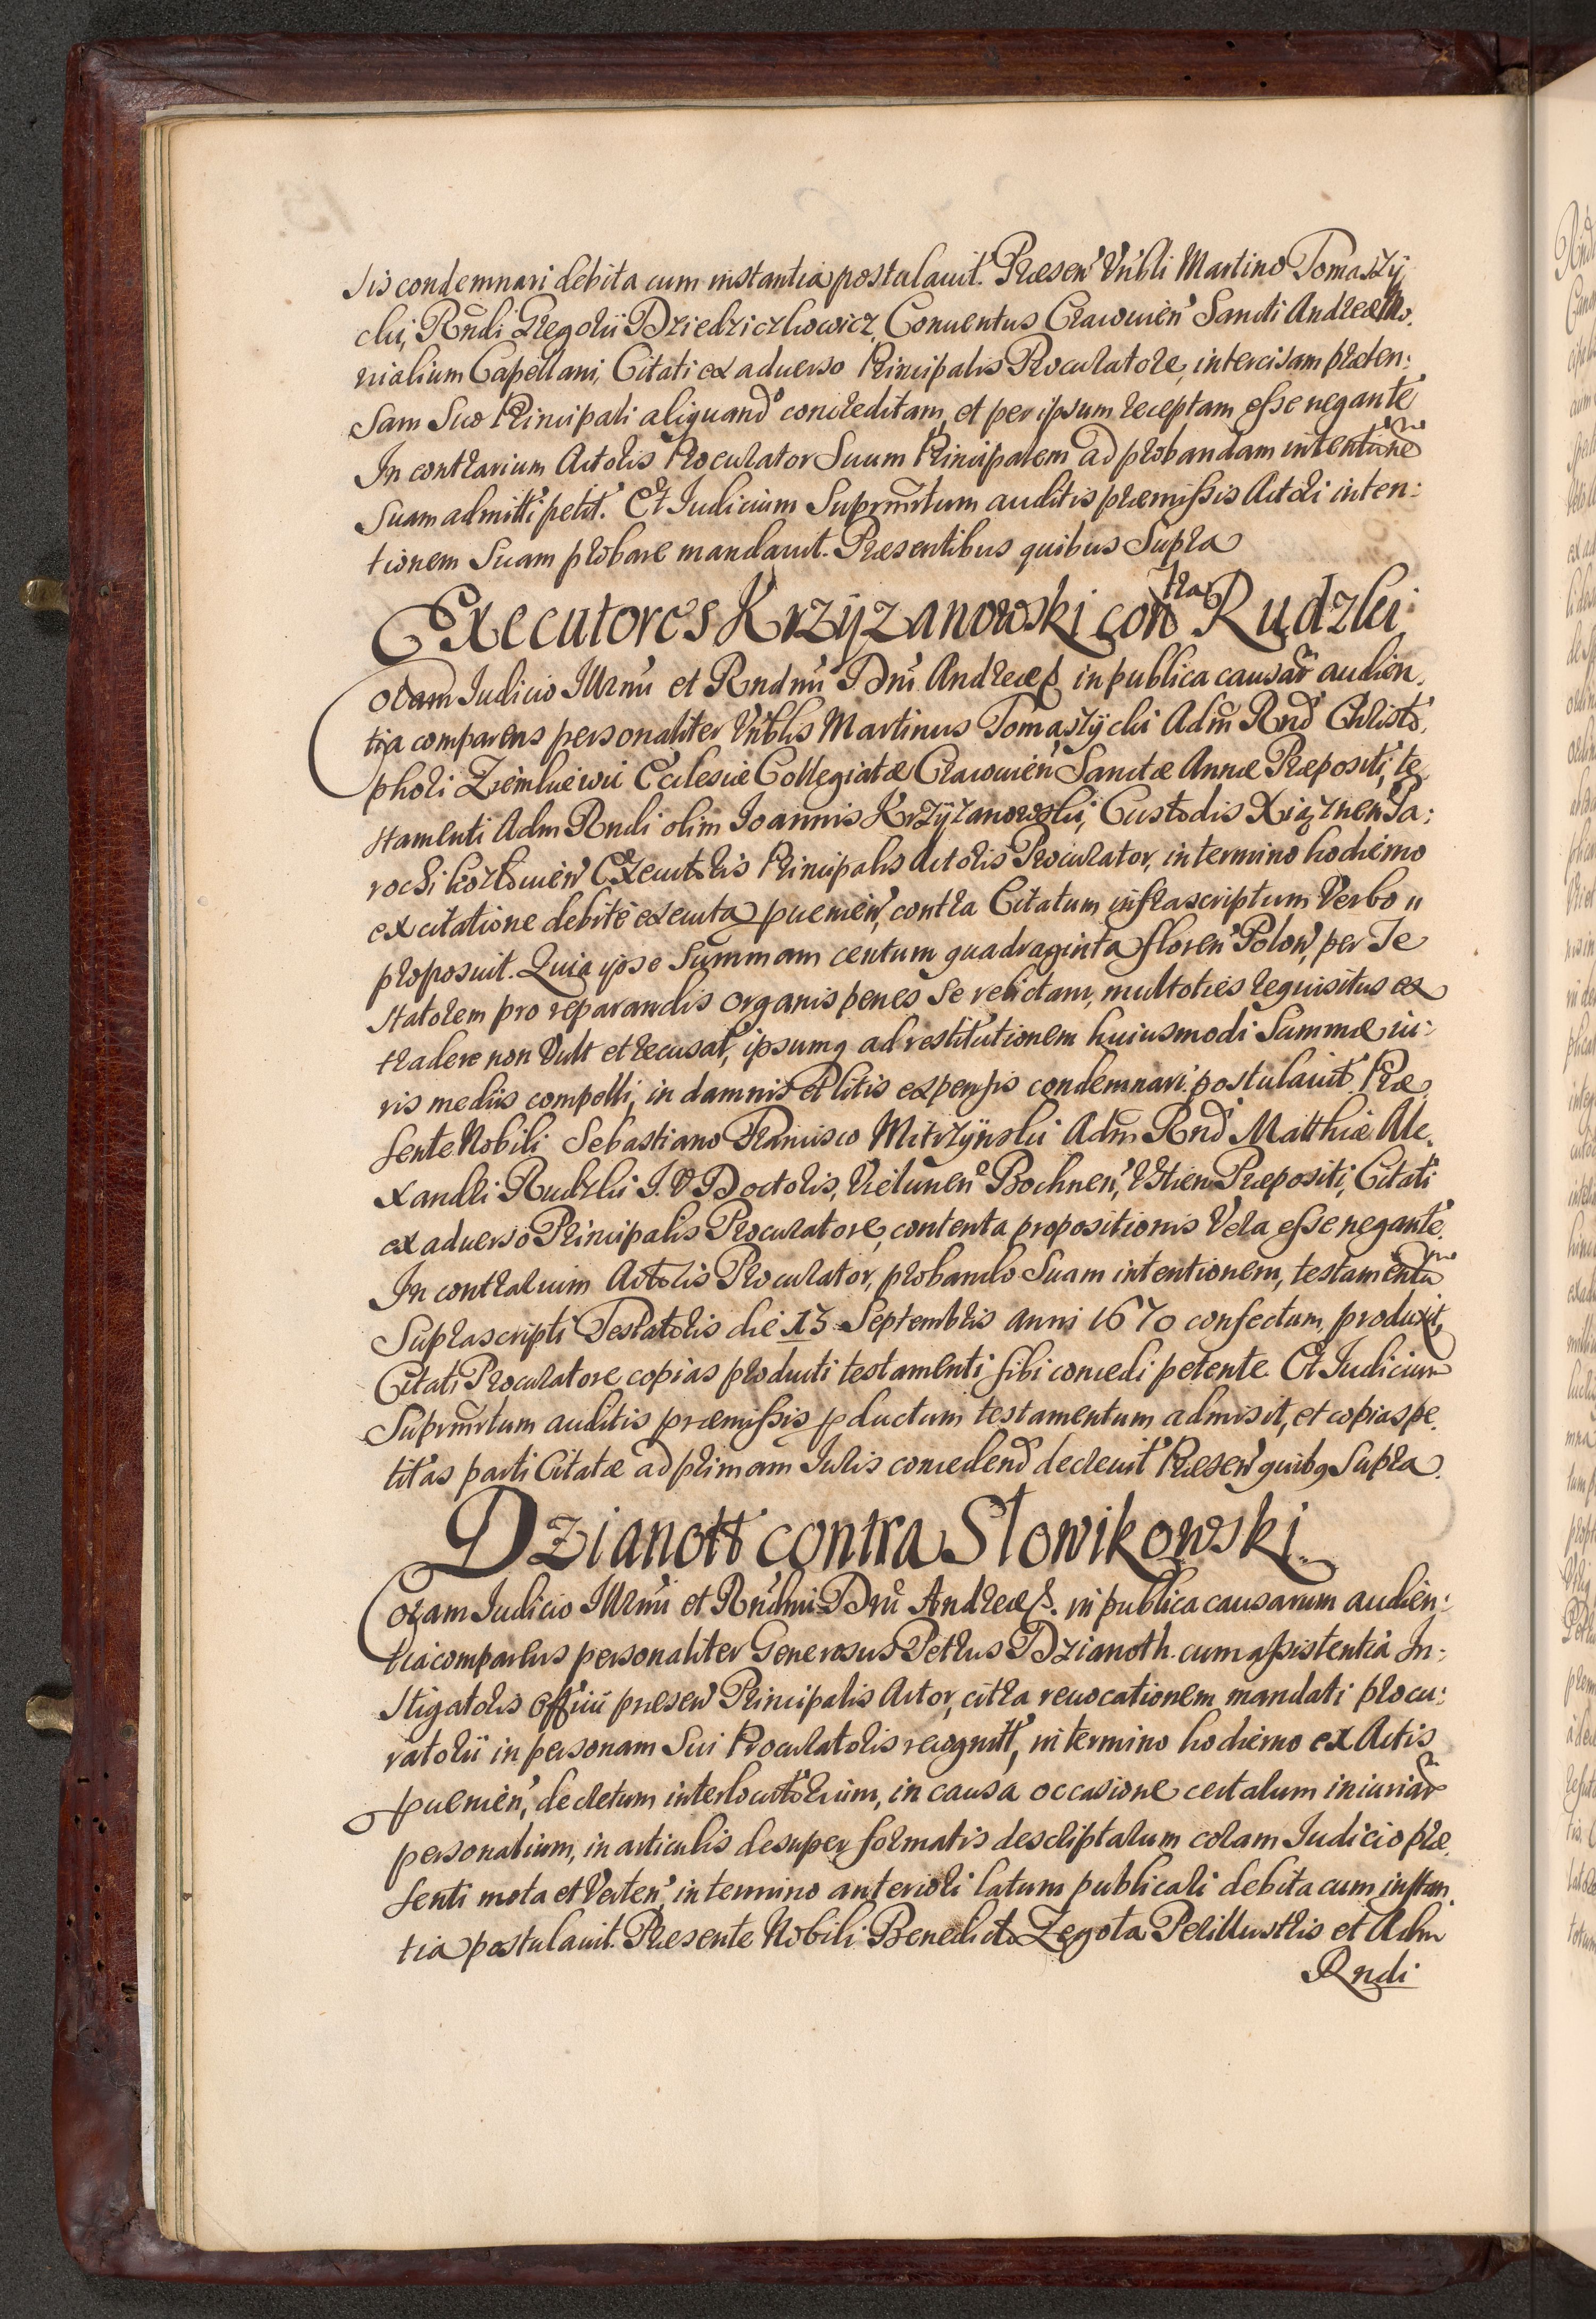 sis condemnari debita cum instantia postulauit. Præsen' Vnbli Martino Tomaszÿ
cki, Rndi Gregorii Dziedziczkowicz, Conuentus Cracouien' Sancti Andreæ Mo.
nialium Capellani, Citati ex aduerso Principalis Procuratore, intercisam præten:
sam Suo Principali aliquand' concreditam, et per ipsum receptam esse negante
In contrarium Actoris Procurator Suum Principalem ad probandam intentione
Suam admitti petit. Et Iudicium Suprmrtum auditis præmissis Actori inten:
tionem Suam probare mandauit. Præsentibus quibus Supra
Executores Krzÿzanowski contra Rudzki
Coram Iudicio Illrmi et Rndmi Dni Andreæ p. in publica causar audien.
tia comparens personaliter Vnblis Martinus Tomaszÿcki Adm Rnd Christo.
phori Ziemkiewii Ecclesiæ Collegiatæ Cracouien' Sanctæ Annæ Præpositi, te
stamenti Adm Rndi olim Ioannis Krzÿzanowski, Custodis Xiąznen' Pa:
rochi Kozlouien' Executoris Principalis Actoris Procurator, in termino hodierno
ex citatione debite executa puenien', contra Citatum infrascriptum Verbo
proposuit. Quia ipse Summam centum quadraginta floren' Polon', per Te
statorem pro reparandis organis penes se relictam, multoties requisitus ex
tradere non Vult et recusat, ipsumq ad restitutionem huiusmodi Summæ iu:
ris mediis compelli, in damnis et litis expensis condemnari postulauit. Præ
sente Nobili Sebastiano Francisco Mitrzÿnski Adm Rnd Matthiæ Ale.
xandri Rudzki I. V. Doctoris, Vielunen' Bochnen', Præpositi, Citati
ex aduerso Principalis Procuratore, contenta propositionis Vera esse negante.
In contrarium Actoris Procurator, probando Suam intentionem, testamentu
Suprascripti Testatoris die 13 Septembris anni 1670 confectum, produxit,
Citati Procuratore copias producti testamenti sibi concedi petente. Et Iudicium
Suprmrtum auditis præmissis pductum testamentum admisit, et copias pe.
titas parti Citatæ ad primam Iuris concedend decreuit. Præsen' quibq Supra.
Dzianott contra Slowikowski
Coram Iudicio Illrmi et Rndmi Dni Andreæ p. in publica causarum audien:
tia comparens personaliter Generosus Petrus Dzianoth. cum assistentia In:
stigatoris officii præsen' Principalis Actor, citra reuocationem mandati procu:
ratorii in personam Sui Procuratoris recognitt', in termino hodierno ex Actis
puenien', decretum interlocutorium, in causa occasione certarum iniuriar
personalium, in articulis desuper formatis descriptarum coram Iudicio præ
senti mota et Verten', in termino anteriori latum publicari debita cum instan.
tia postulauit. Præsente Nobili Benedicto Zegota Perillustris et Adm
Rndi